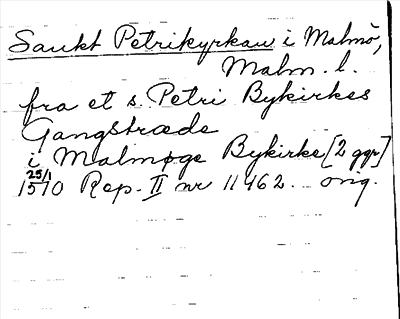 Sankt Petrikyrkan i Malmö,
Malm. l.
fra et s. Petri Bykirkes
Gangstræde
i Malmøge Bykirke [2 ggr]
25/1 1570 Rep. II nr 11462. orig.